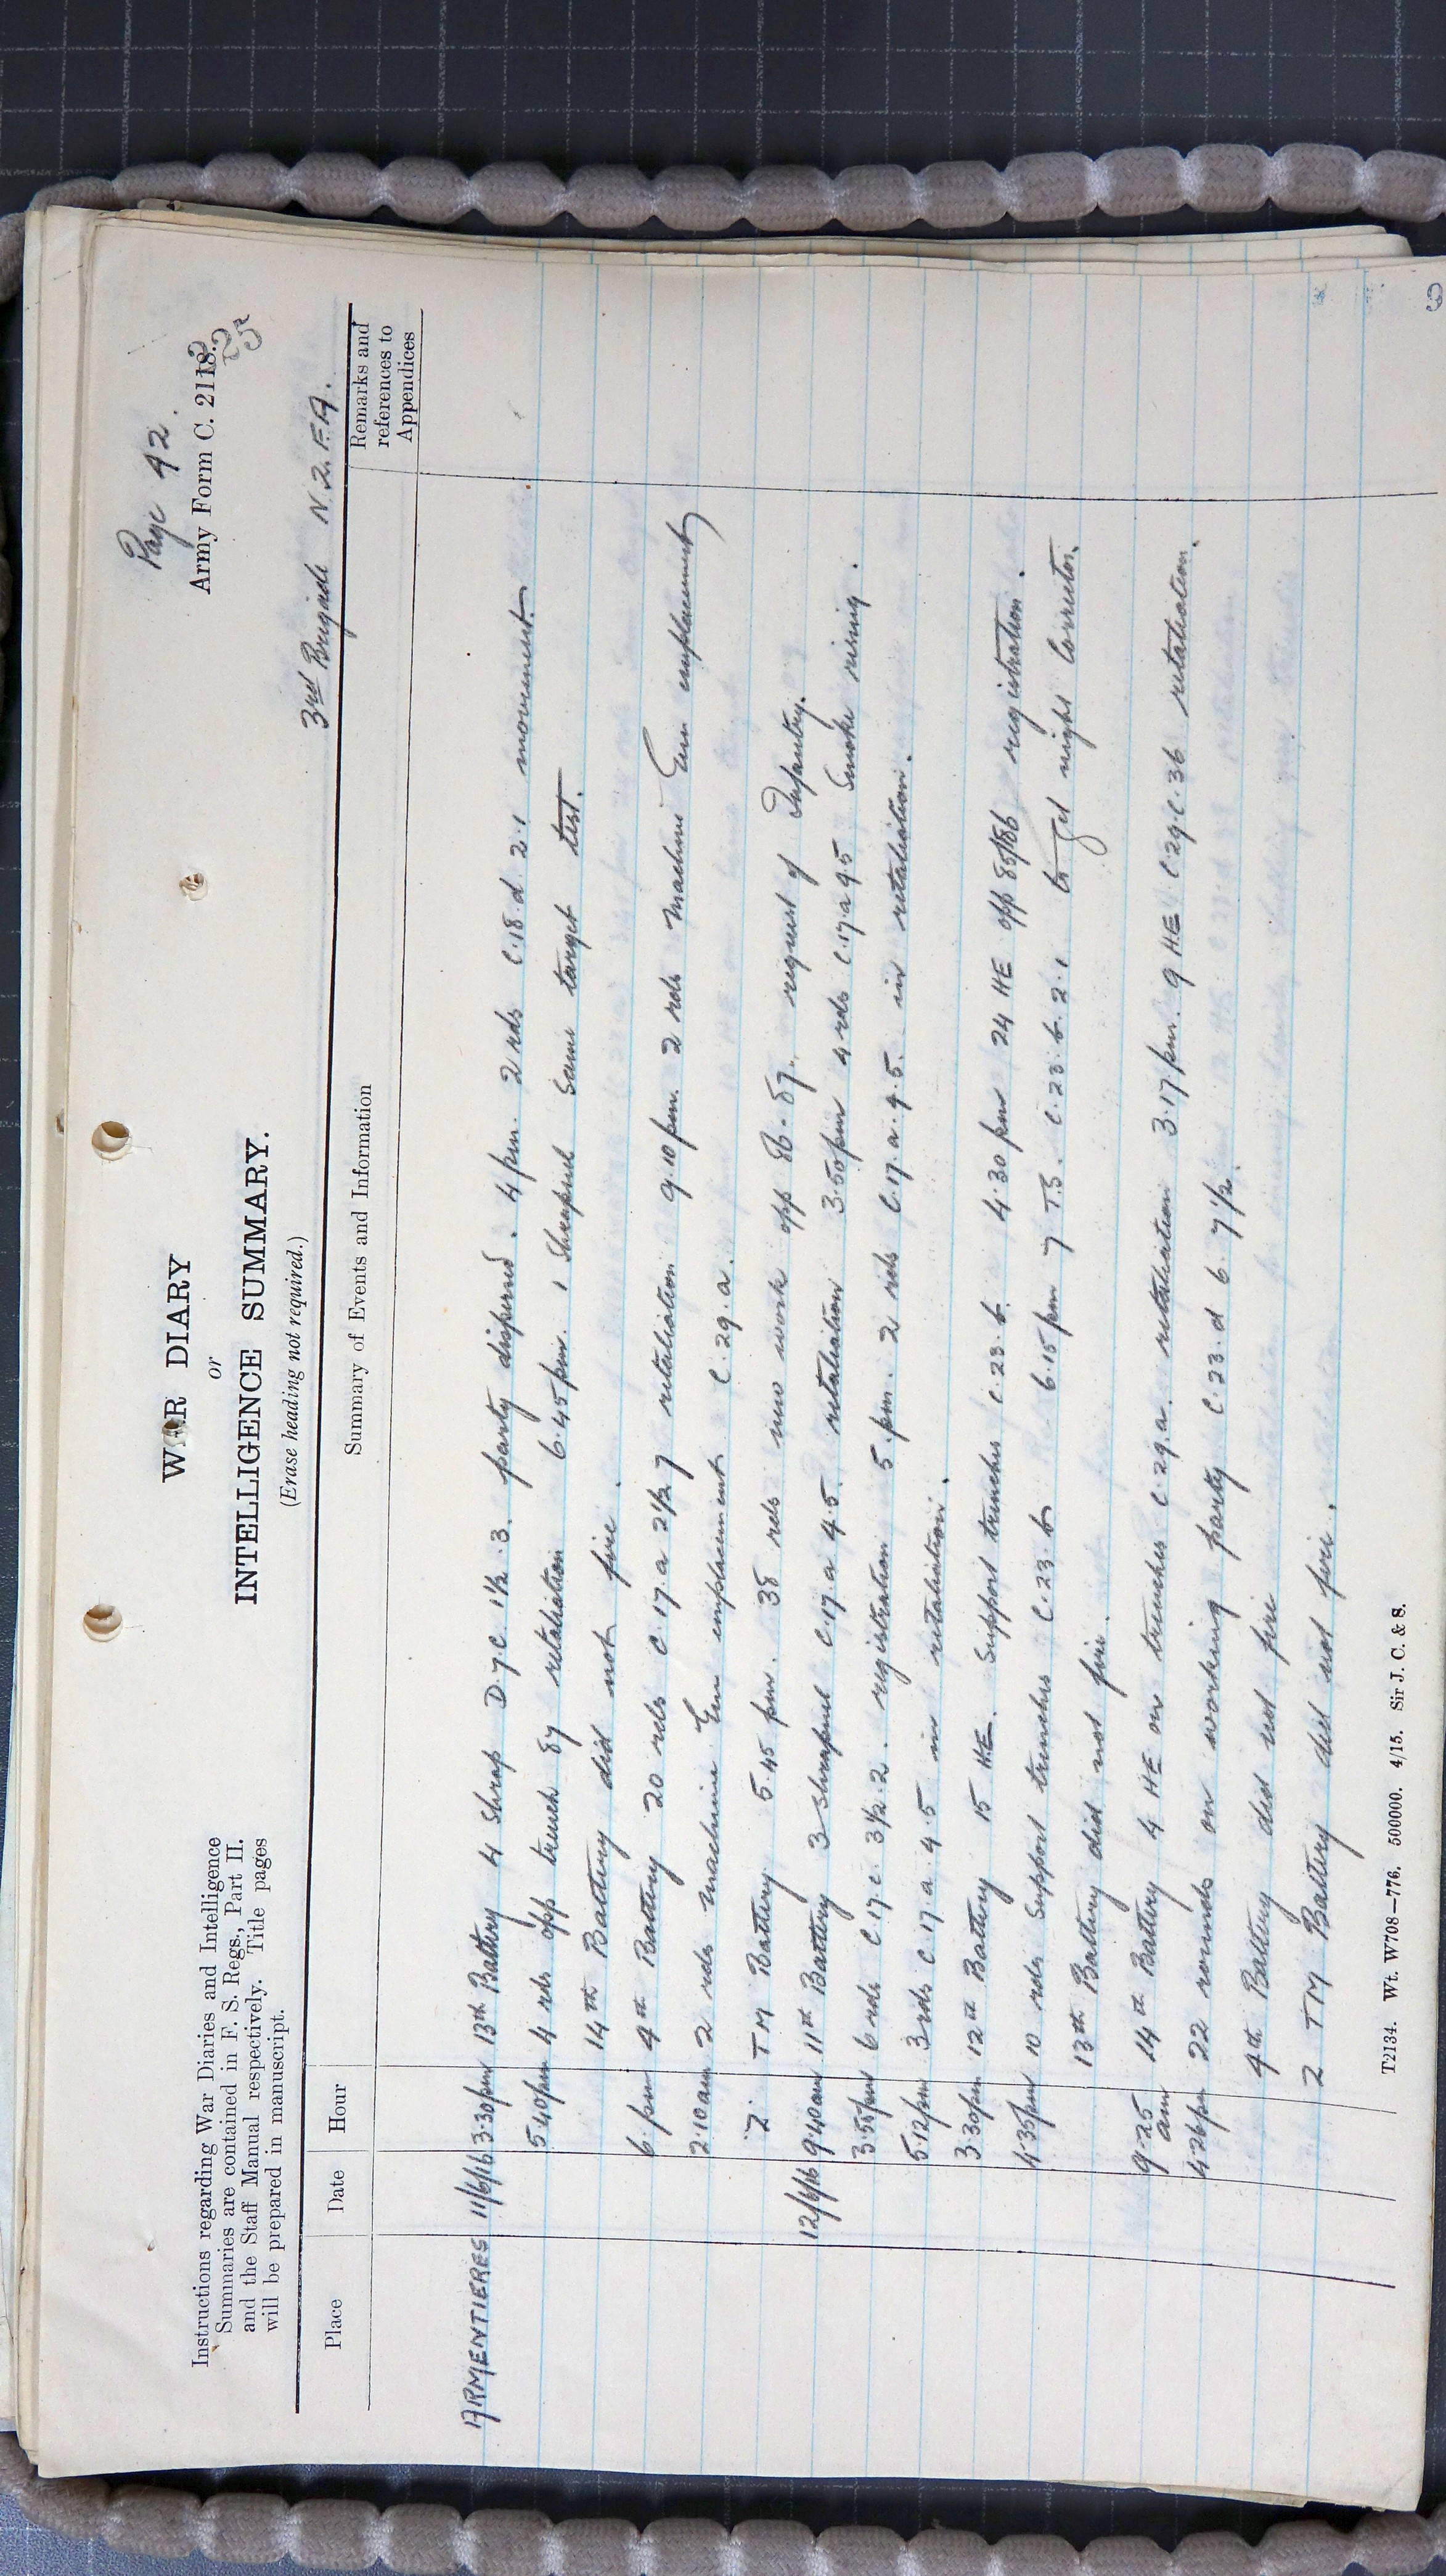 Page 42.
Army Form C. 2118.
225
WAR DIARY
or
INTELLIGENCE SUMMARY.
(Erase heading not required.)
Instructions regarding War Diaries and Intelligence
Summaries are contained in F. S. Regs., Part II.
and the Staff Manual respectively. Title pages
will be prepared in manuscript.
3rd Brigade N.Z.F.A.
Place Date Hour Summary of Events and Information Remarks and references to Appendices
ARMENTIERES 11/6/16 3.30pm 13th Battery 4 Shrap D.7.c. 1½.3. party dispersed. 4 pm. 2 rds C.18.d.2.1 movement
5.40pm 4 rds opp trench 87 retaliation 6.45 pm. 1 Shrapnel same target test.
14th Battery did not fire.
6.pm 4th Battery 20 rds C.17.a 2½ 7 retaliation 9.10 pm. 2 rds Machine Gun emplacement
2.10am 2 rds machine Gun emplacement C.29.a.
Z. TM Battery 5.45 pm. 38 rds new work opp 86-87. request of Infantry.
12/6/16 9.40am 11th Battery 3 shrapnel C.17.a 4.5. retaliation 3.50pm 4 rds C.17.a 95 Smoke rising.
3.55pm 6 rds C.17.c. 3½.2. registration 5.pm. 2 rds C.17.a.9.5. in retaliation.
5.12pm 3 rds C.17.a.4.5 in retaliation.
3.30pm 12th Battery 15 HE. Support trenches C.23.b. 4.30 pm 24 HE opp 85/86 registration.
4.35pm 10 rds Support trenches C.23.b 6.15 pm 7 T.S. C.23.b.2.1 to get night corrector.
13th Battery did not fire.
9.25 am 14th Battery 4 HE on trenches C.29.a. retaliation 3.17 pm. 9 HE C.29.c.36 retaliation.
4.26pm 22 rounds on working party C.23.d 6. 7½.
4th Battery did not fire
Z TM Battery did not fire.
T2134. Wt. W708—776. 500000. 4/15. Sir J. C. & S.